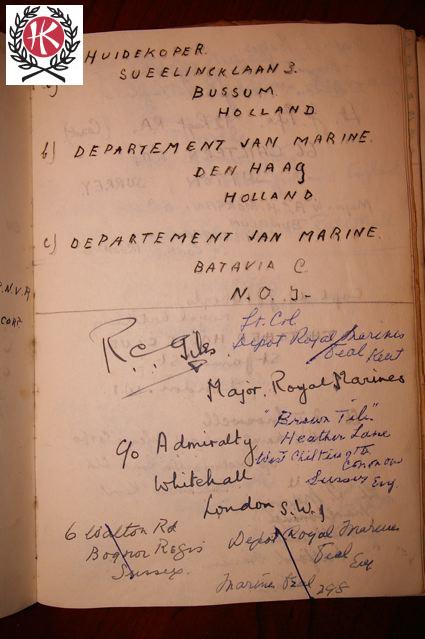 HK
HUIDEKOPER.
SUEELINCKLAAN 3.
a)
BUSSUM.
HOLLAND
b) DEPARTEMENT VAN MARINE.
DEN HAAG
HOLLAND
c) DEPARTEMENT VAN MARINE.
BATAVIA C
N.O.I.
R.N.V.R
CORP.
Lt. Col
Depot Royal Marines
Deal Kent
R.C.
Major. Royal Marines
"Brown Tile"
Heather Lane
West Chiltington
Common
Sussex Eng.
c/o Admiralty
Whitehall
London S.W.1
6 Walton Rd
Bognor Regis
Sussex.
Depot Royal Marines
Deal
Eng
Marine Deal 298